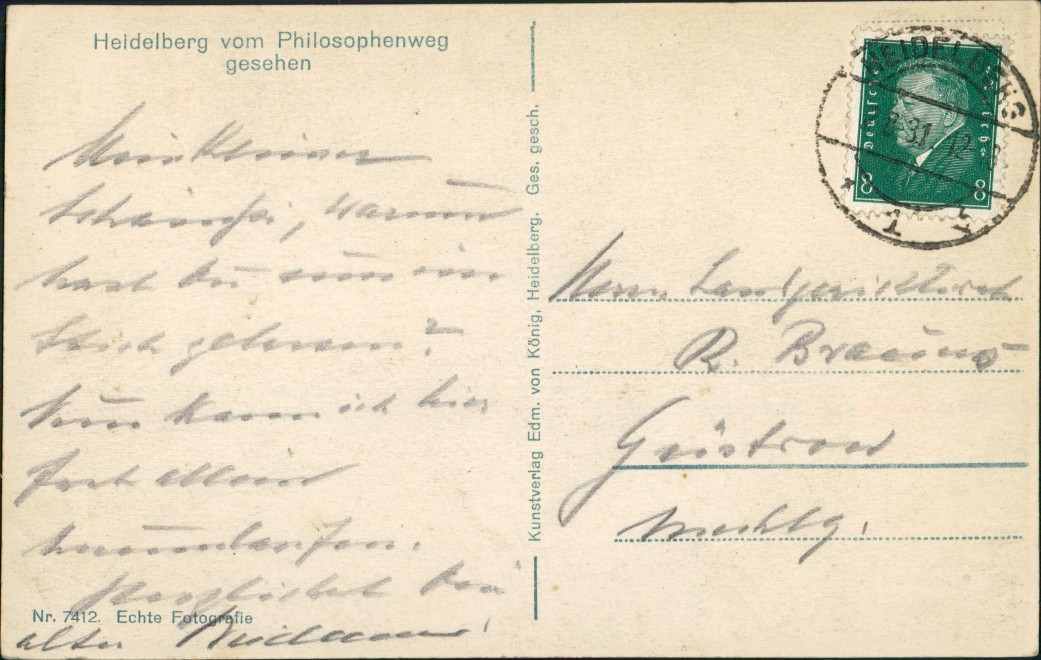 Heidelberg vom Philosophenweg
gesehen
Mein Kleiner
warum
hast Du nun im
Stich gelassen?
Nun kann ich hier
fast allein
herumlaufen.
Herzlichst Dein
alter
Nr. 7412. Echte Fotografie
Kunstverlag Edm. von König, Heidelberg. Ges. gesch.
HEIDELBERG
31 12
8 8
Herrn Landgerichtsrat
R. Brauns
Güstrow
Mecklbg.